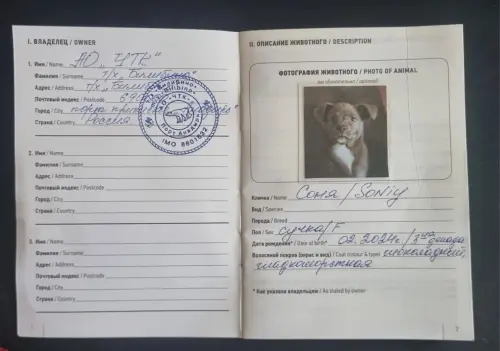 I. ВЛАДЕЛЕЦ / OWNER
1. Имя / Name АО „ЧТК"
Фамилия / Surname
Адрес / Address
Почтовый индекс / Postcode
Город / City
Страна / Country Россия
IMO 8801692
2. Имя / Name
Фамилия / Surname
Адрес / Address
Почтовый индекс / Postcode
Город / City
Страна / Country
3. Имя / Name
Фамилия / Surname
Адрес / Address
Почтовый индекс / Postcode
Город / City
Страна / Country
II. ОПИСАНИЕ ЖИВОТНОГО / DESCRIPTION
ФОТОГРАФИЯ ЖИВОТНОГО / PHOTO OF ANIMAL
(не обязательно / optional)
Кличка / Name Соня / Soniy
Вид / Species
Порода / Breed
Пол / Sex сучка/F
Дата рождения* / Date of birth* 02.2024г. / 3-ая декада
Волосяной покров (окрас и вид) / Coat (colour & type) шоколадный,
гладкошёрстная
* Как указано владельцем / As stated by owner
2